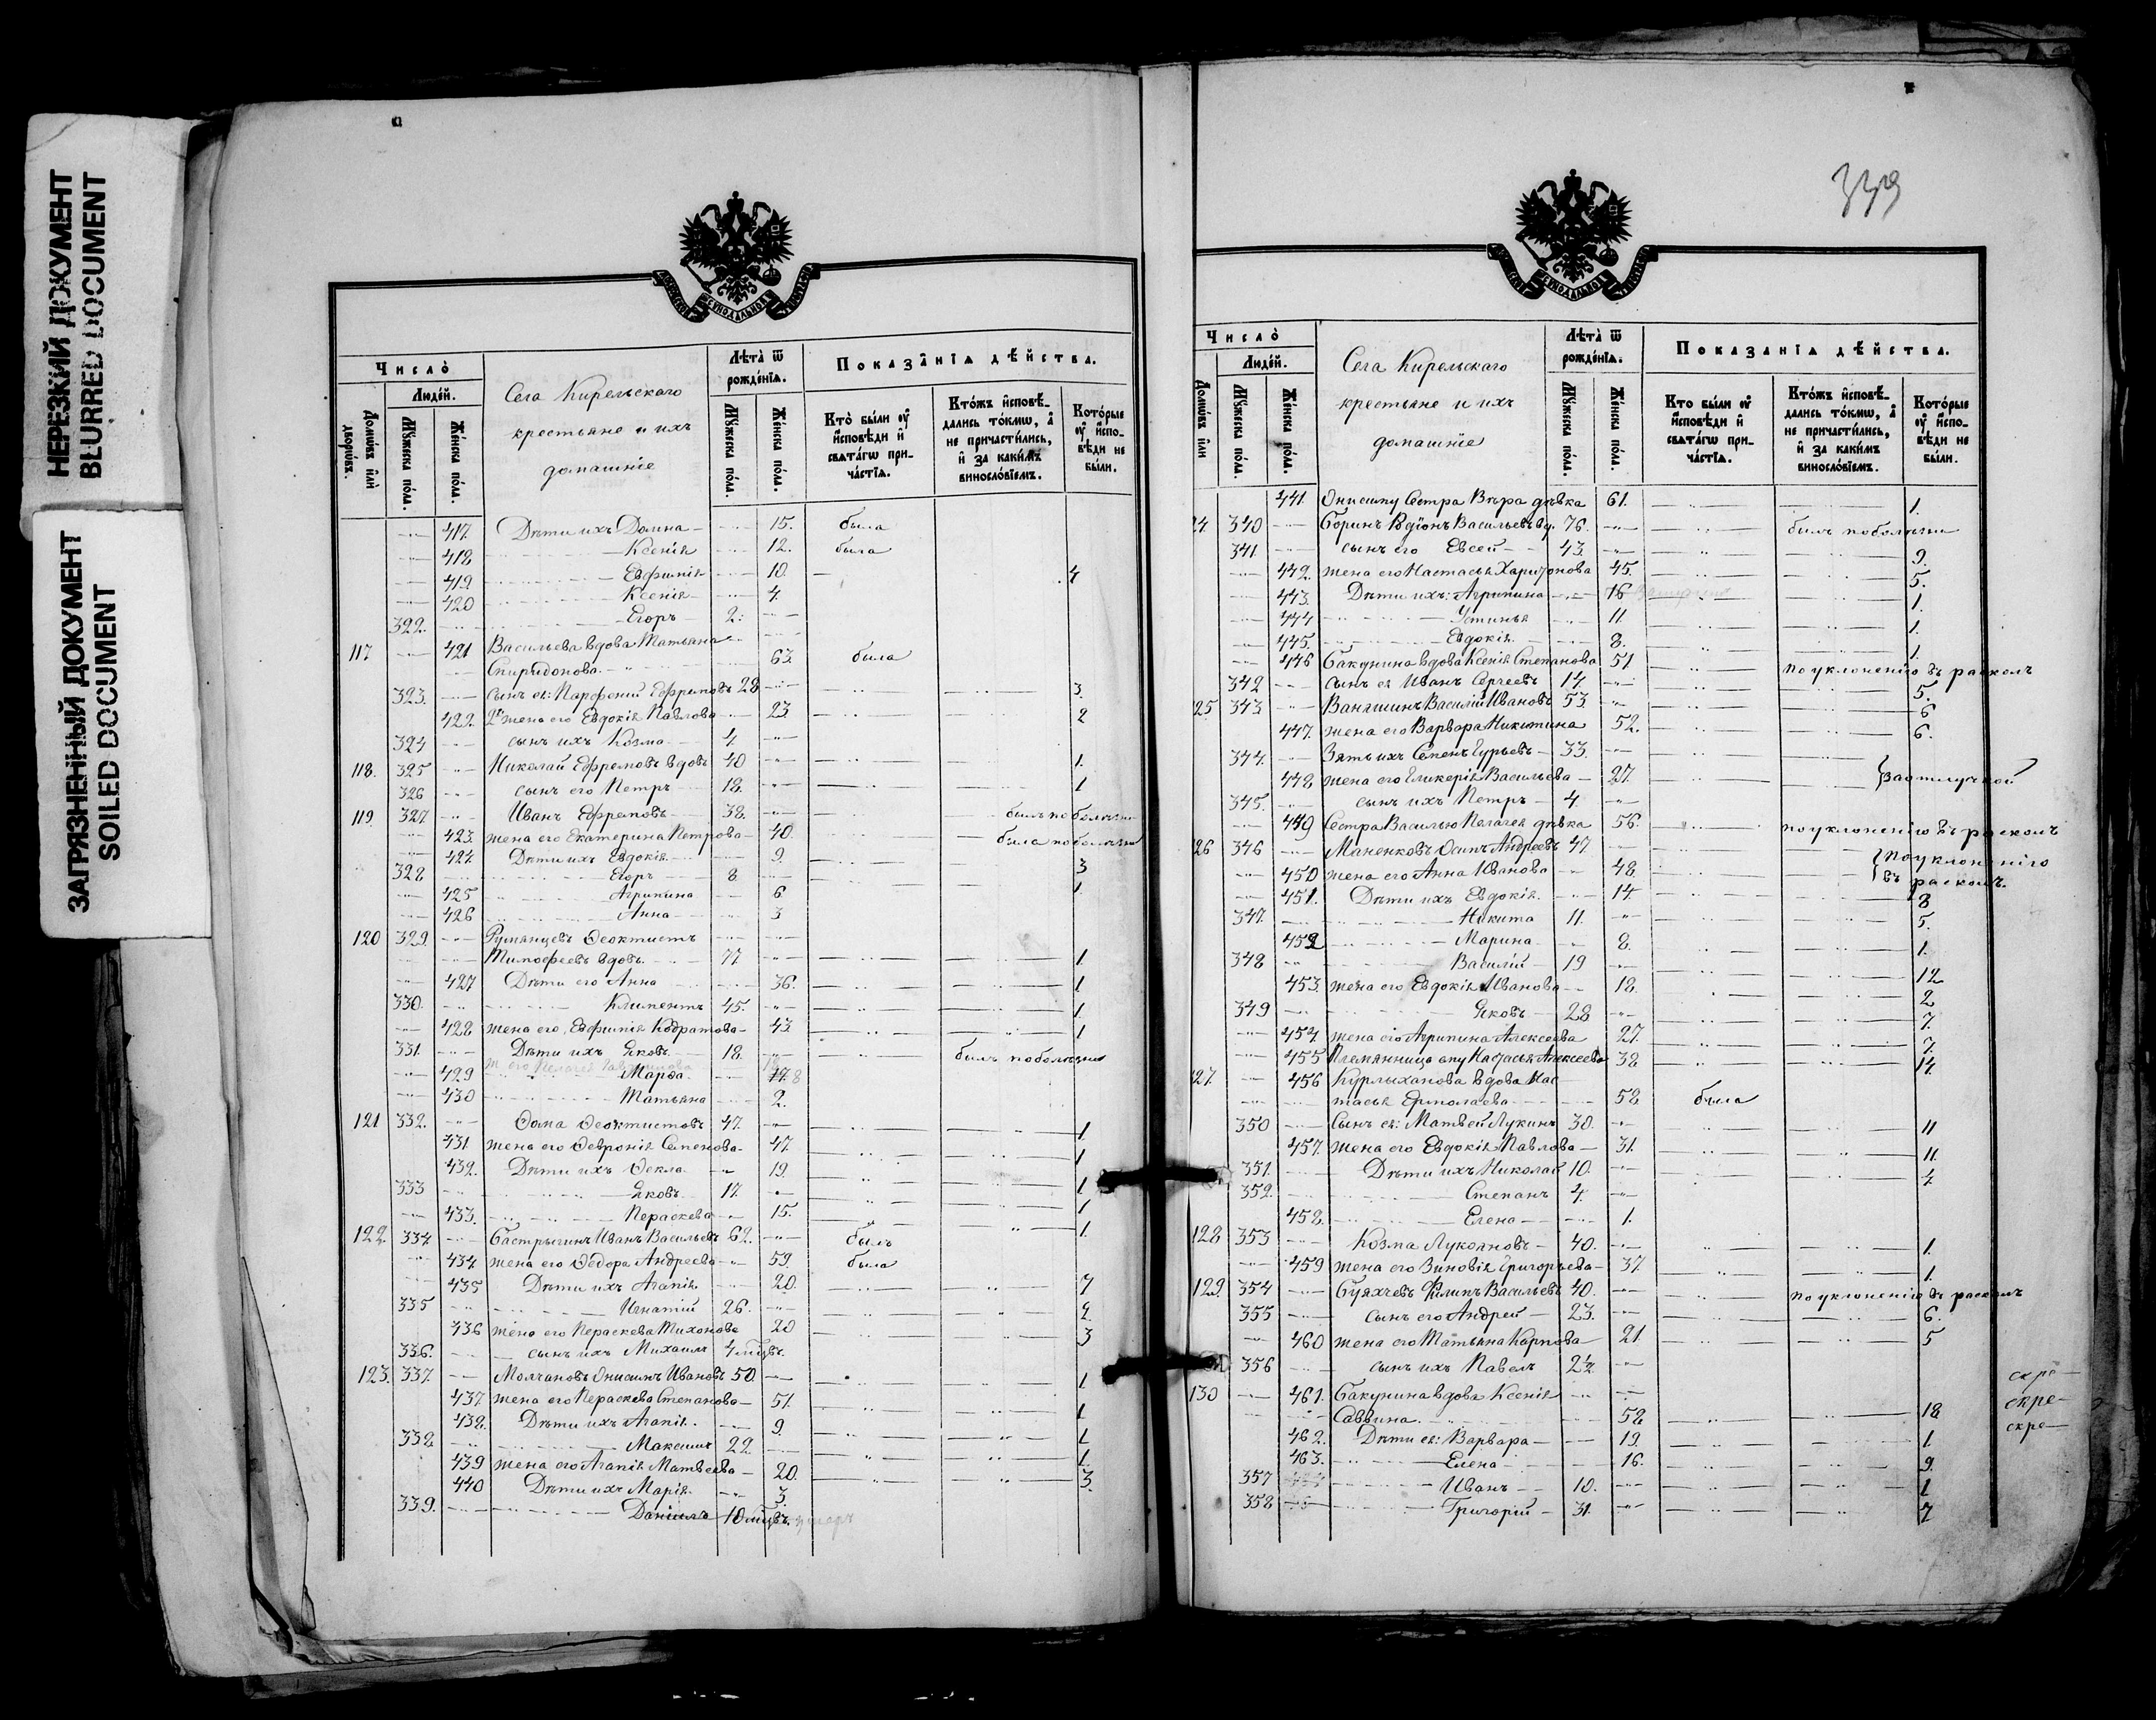 НЕРЕЗКИЙ ДОКУМЕНТ
BLURRED DOCUMENT
ЗАГРЯЗНЕННЫЙ ДОКУМЕНТ
SOILED DOCUMENT
Число̀
Людéй.
Домѡ́въ и҆лѝ дворѡ́въ.
Мꙋ́жеска по́ла.
Же́нска по́ла.
Села Кирельскаго
крестьяне и ихъ
домашнiе
Лѣта̀ ѿ рождéнїѧ.
Мꙋ́жеска по́ла.
Же́нска по́ла.
Показа̑нїѧ дѣ́йства.
Кто̀ бы́ли ᲂу҆ и҆сповѣди и҆ свѧта́гѡ прича́стїѧ.
Кто́жъ и҆сповѣ́дались то́кмѡ, а҆ не причасти́лись, и҆ за каки́мъ винослóвїемъ.
Кото́рые ᲂу҆ и҆сповѣ́ди не бы́ли.
417 Дѣти ихъ Домна 15. была
418 Ксенiя 12. была
419 Евфимiя 10. 4
420 Ксенiя 4.
322. Егоръ 2.
117 421 Васильева вдова Татьяна
Спиридонова 63. была
323. сынъ ея: Парфенiй Ефремовъ 28 3.
422. 2я жена его Евдокiя Павлова 23. 2
324 сынъ ихъ Козма 4.
118. 325 Николай Ефремовъ вдовъ 40 1.
326 сынъ его Петръ 18. 1
119. 327 Иванъ Ефремовъ 38. былъ по болѣзни
423. жена его Екатерина Петрова 40. была по болѣзни
424. Дѣти ихъ Евдокiя 9. 3
328 Егоръ 8 1.
425 Агрипина 6.
426 Анна 3
120 329. Румянцевъ Ѳеоктистъ
Тимоѳеевъ вдовъ 77 1.
427 Дѣти его Анна 36. 1
330. Климентъ 45. 1
428 жена его Евфимiя Кодратова 43 1
331. Дѣти ихъ Яковъ 18. былъ по болѣзни
429 Марѳа 8
430 Татьяна 2.
121 332. Ѳома Ѳеоктистовъ 47. 1
431. жена его Ѳевронiя Семенова 47. 1
432. Дѣти ихъ Ѳекла 19. 1
333 Яковъ 17. 1
433. Пераскева 15. 1.
122. 334. Бастрыгинъ Иванъ Васильевъ 62. былъ
434. жена его Ѳедора Андреева 59. была
435 Дѣти ихъ Агапiя 20. 7
335 Игнатiй 26. 2.
436 жена его Пераскева Тихонова 20 3
336. сынъ ихъ Михаилъ 4 мцвъ.
123. 337. Молчановъ Онисимъ Ивановъ 50. 1
437. жена его Пераскева Степанова 51. 1
438. Дѣти ихъ Агапiя 9. 1
338 Максимъ 22. 1.
439 жена его Агапiя Матвеева 20. 3.
440 Дѣти ихъ Марiя 3.
339. Данiилъ 10 мцвъ. умеръ
339
Число̀
Людéй.
Домѡ́въ и҆лѝ
Мꙋ́жеска по́ла.
Же́нска по́ла.
Села Кирельскаго
крестьяне и ихъ
домашнiе
Лѣта̀ ѿ рождéнїѧ.
Мꙋ́жеска по́ла.
Же́нска по́ла.
Показа̑нїѧ дѣ́йства.
Кто̀ бы́ли ᲂу҆ и҆сповѣди и҆ свѧта́гѡ прича́стїѧ.
Кто́жъ и҆сповѣ́дались то́кмѡ, а҆ не причасти́лись, и҆ за каки́мъ винослóвїемъ.
Кото́рые ᲂу҆ и҆сповѣ́ди не бы́ли.
441. Онисиму Сестра Вѣра дѣвка 61. 1.
24 340 Боринъ Родiонъ Васильевъ вд. 76. былъ по болѣзни
341. сынъ его Евсей 43. 9.
442. жена его Настасья Харитонова 45. 5.
443. Дѣти ихъ: Агрипина 16 1.
444 Устинья 11. 1.
445. Евдокiя 8. 1.
446 Бакунина вдова Ксенiя Степанова 51. по уклоненiю въ расколъ
342 сынъ ея Иванъ Сергеевъ 14. 5.
25 343 Ванягинъ Василiй Ивановъ 53. 6
447. жена его Варвара Никитина 52. 6.
344. Зять ихъ Семенъ Гурьевъ 33.
448 жена его Гликерiя Васильева 27. за отлучкой
345. сынъ ихъ Петръ 4.
449 Сестра Василью Пелагея дѣвка 56. по уклоненiю въ расколъ
26 346 Маненковъ Осипъ Андреевъ 47 по уклоненiю
450 жена его Анна Иванова 48. въ расколъ.
451. Дѣти ихъ Евдокiя 14. 8
347. Никита 11. 5.
452 Марина 8. 1.
348 Василiй 19 12
453. жена его Евдокiя Иванова 18. 2
349 Яковъ 28 7.
454. жена его Агрипина Алексеева 27. 7.
455 Племянница ему Настасья Алексеева 38 14.
27. 456 Курлыханова вдова Нас
тасья Ермолаева 58 была
350 Сынъ ея: Матвей Лукинъ 30. 11
457. жена его Евдокiя Павлова 31. 11.
351. Дѣти ихъ Николай 10. 4
352. Степанъ 4.
458. Елена 1.
128 353 Козма Лукояновъ 40. 1.
459 жена его Зиновiя Григорьева 37 1.
129. 354 Филипъ Васильевъ 40. по уклоненiю въ расколъ
355 сынъ его Андрей 23. 6.
460 жена его Татьяна Карпова 21. 5
356 сынъ ихъ Павелъ 2½
130 461. Бакунина вдова Ксенiя
Саввина 58 18
462. Дѣти ея: Варвара 19. 1.
463. Елена 16. 9.
357 Иванъ 10. 1
358 Григорiй 31. 7
скре—
скре—
скре—